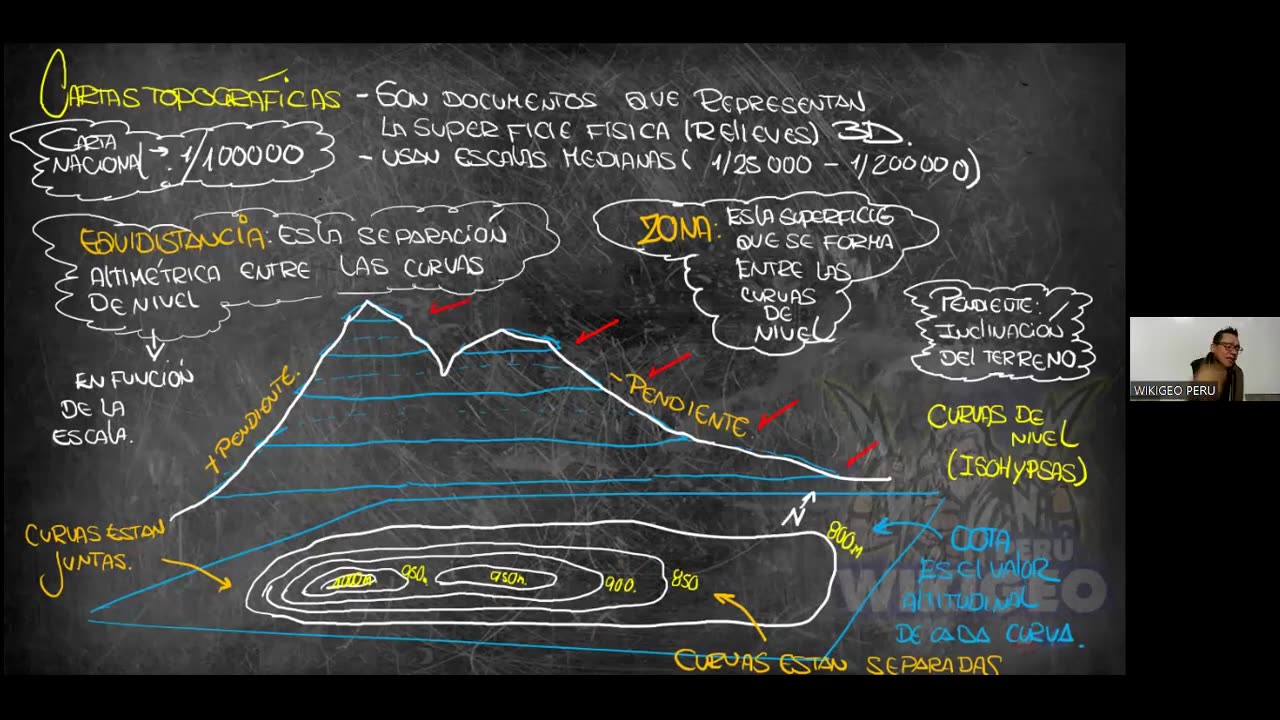 CARTAS TOPOGRÁFICAS - SON DOCUMENTOS QUE REPRESENTAN
LA SUPERFICIE FÍSICA (RELIEVES) 3D.
- USAN ESCALAS MEDIANAS ( 1/25 000 - 1/200 000)
CARTA
NACIONAL → 1/100000
EQUIDISTANCIA: ES LA SEPARACIÓN
ALTIMÉTRICA ENTRE LAS CURVAS
DE NIVEL
EN FUNCIÓN
DE LA
ESCALA.
ZONA: ES LA SUPERFICIE
QUE SE FORMA
ENTRE LAS
CURVAS
DE
NIVEL
PENDIENTE:
INCLINACIÓN
DEL TERRENO
+ PENDIENTE.
- PENDIENTE.
CURVAS DE
NIVEL
(ISOHYPSAS)
WIKIGEO PERU
CURVAS ESTAN
JUNTAS.
N
800m
1000m
950m
950m.
900.
850
COTA
ES El VALOR
ALTITUDINAL
DE CADA CURVA.
CURVAS ESTAN SEPARADAS
PERÚ
WIKIGEO